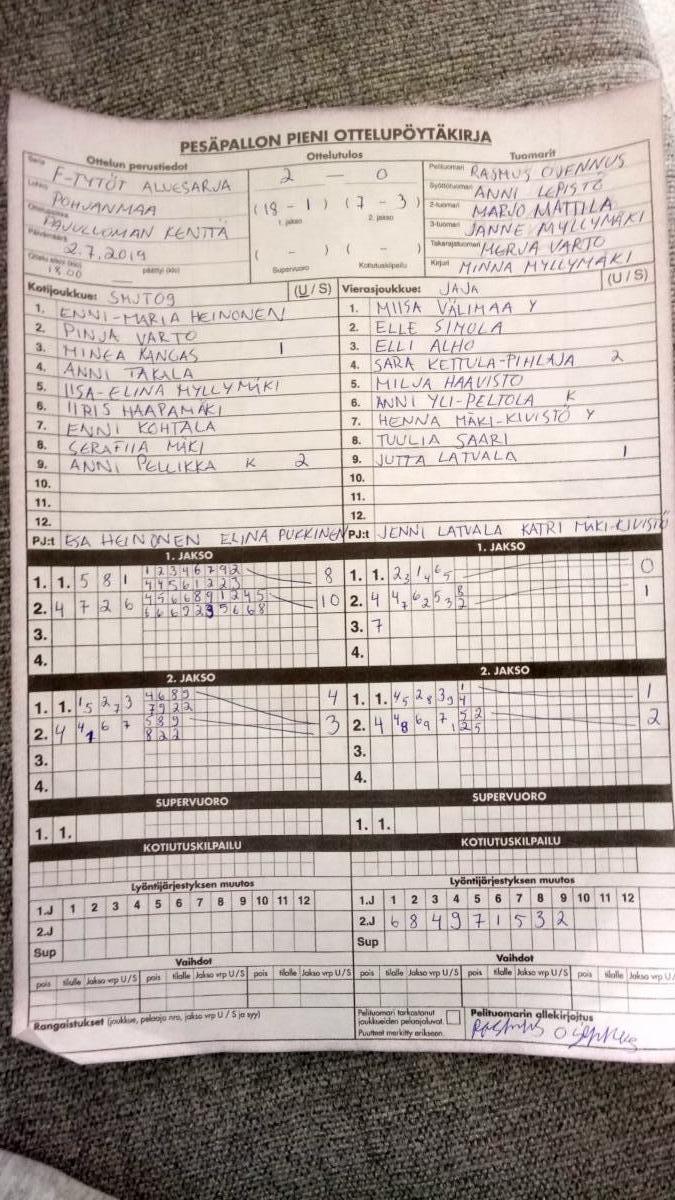 PESÄPALLON PIENI OTTELUPÖYTÄKIRJA
Ottelun perustiedot
Ottelutulos
Tuomarit
F-TYTÖT ALUESARJA
POHJANMAA
PAJULUOMAN KENTTÄ
2.7.2019
18.00 päättyi (klo)
2 — 0
(18 - 1) (7 - 3)
1. jakso 2. jakso
( - ) ( - )
Supervuoro Kotiutuskilpailu
Pelituomari RASMUS OJENNUS
Syöttötuomari ANNI LEPISTÖ
2-tuomari MARJO MATTILA
3-tuomari JANNE MYLLYMÄKI
Takarajatuomari MERJA VARTO
Kirjuri MINNA MYLLYMÄKI
Kotijoukkue: SMJT09 (U / S)
1. ENNI-MARIA HEINONEN
2. PINJA VARTO
3. MINEA KANGAS 1
4. ANNI TAKALA
5. IISA-ELINA MYLLYMÄKI
6. IIRIS HAAPAMÄKI
7. ENNI KOHTALA
8. SERAFIIA MÄKI
9. ANNI PELLIKKA K 2
10.
11.
12.
PJ:t ESA HEINONEN ELINA PUKKINEN
Vierasjoukkue: JAJA (U / S)
1. MIISA VÄLIMAA Y
2. ELLE SIMOLA
3. ELLI ALHO
4. SARA KETTULA-PIHLAJA 2
5. MILJA HAAVISTO
6. ANNI YLI-PELTOLA K
7. HENNA MÄKI-KIVISTÖ Y
8. TUULIA SAARI
9. JUTTA LATVALA 1
10.
11.
12.
PJ:t JENNI LATVALA KATRI MÄKI-KIVISTÖ
1. JAKSO
1. 1. 5 8 1 1 2 3 4 6 7 9 2 8
4 4 5 6 1 2 2 3
2. 4 7 2 6 4 5 6 6 8 9 1 2 4 5 10
6 6 6 9 2 3 5 6 6 8
3.
4.
1. JAKSO
1. 1. 2 3 1 4 6 5 0
2. 4 4 7 6 2 5 3 8 2 1
3. 7
4.
2. JAKSO
1. 1. 1 5 2 7 3 4 6 8 9 4
7 9 2 2
2. 4 4 1 6 7 5 8 9 3
8 2 2
3.
4.
2. JAKSO
1. 1. 4 5 2 8 3 9 1 4 1
2. 4 4 8 6 9 7 1 5 2 2
2 5
3.
4.
SUPERVUORO
1. 1.
SUPERVUORO
1. 1.
KOTIUTUSKILPAILU
KOTIUTUSKILPAILU
Lyöntijärjestyksen muutos
1.J 1 2 3 4 5 6 7 8 9 10 11 12
2.J
Sup
Lyöntijärjestyksen muutos
1.J 1 2 3 4 5 6 7 8 9 10 11 12
2.J 6 8 4 9 7 1 5 3 2
Sup
Vaihdot
pois tilalle Jakso vrp U/S pois tilalle Jakso vrp U/S pois tilalle Jakso vrp U/S
Vaihdot
pois tilalle Jakso vrp U/S pois tilalle Jakso vrp U/S pois tilalle Jakso vrp U/S
Rangaistukset (joukkue, pelaaja nro, jakso vrp U / S ja syy)
Pelituomari tarkastanut
joukkueiden pelaajaluvat.
Puutteet merkitty erikseen.
Pelituomarin allekirjoitus